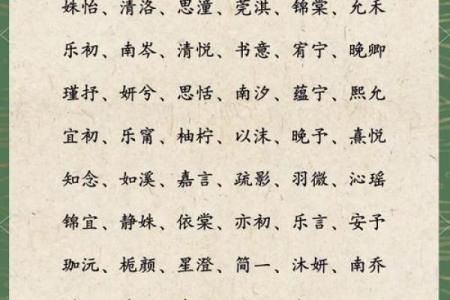 姝怡、清洛、思潼、莞淇、锦棠、允禾
乐初、南岑、清悦、书意、宥宁、晚卿
瑾抒、妍兮、思恬、南汐、蕴宁、熙允
宜初、乐甯、柚柠、以沫、晚予、熹悦
知念、如溪、嘉言、疏影、羽微、沁瑶
锦宜、静姝、依棠、亦初、乐言、安予
珈沅、栀颜、星澄、简一、沐妍、南乔